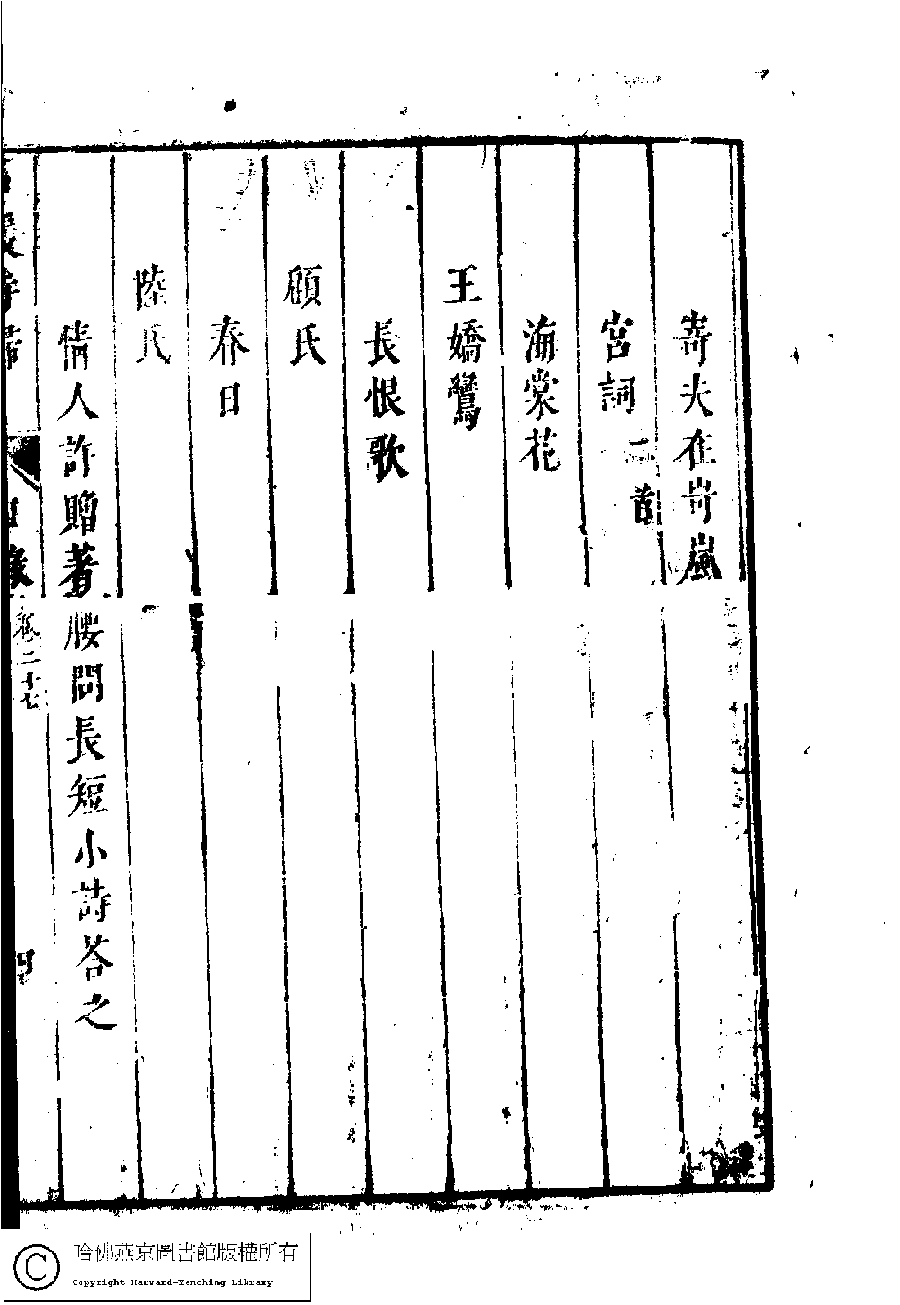 寄夫在岢嵐
宮詞二首
海棠花
王嬌鸞
長恨歌
顧氏
春日
陸氏
情人許贈著腰問長短小詩答之
目錄 卷二十七 四
哈佛燕京圖書館版權所有
Copyright Harvard-Yenching Library